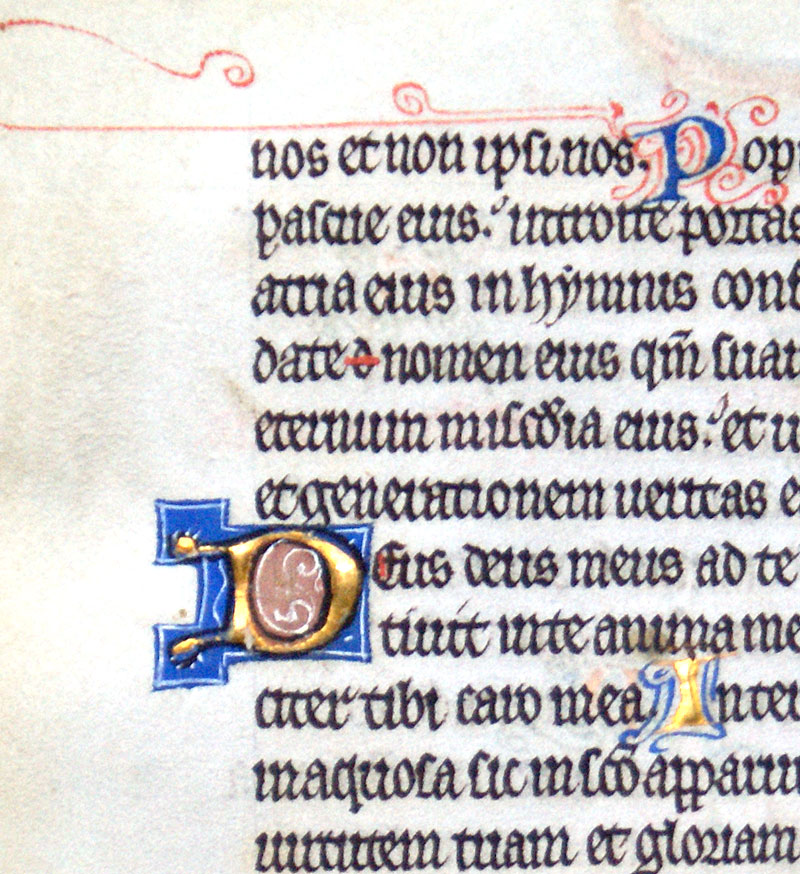 nos et non ipsi nos. Pop
pascue eius. introite portas
atria eius in hymnis conf
date d nomen eius qm̄ suau
eternum miscd̄ia eius. et u
et generationem ueritas e
Deus deus meus ad te
tiuit in te anima me
citer tibi caro mea. In ter
inaquosa sic in scō apparui
uirtutem tuam et gloriam